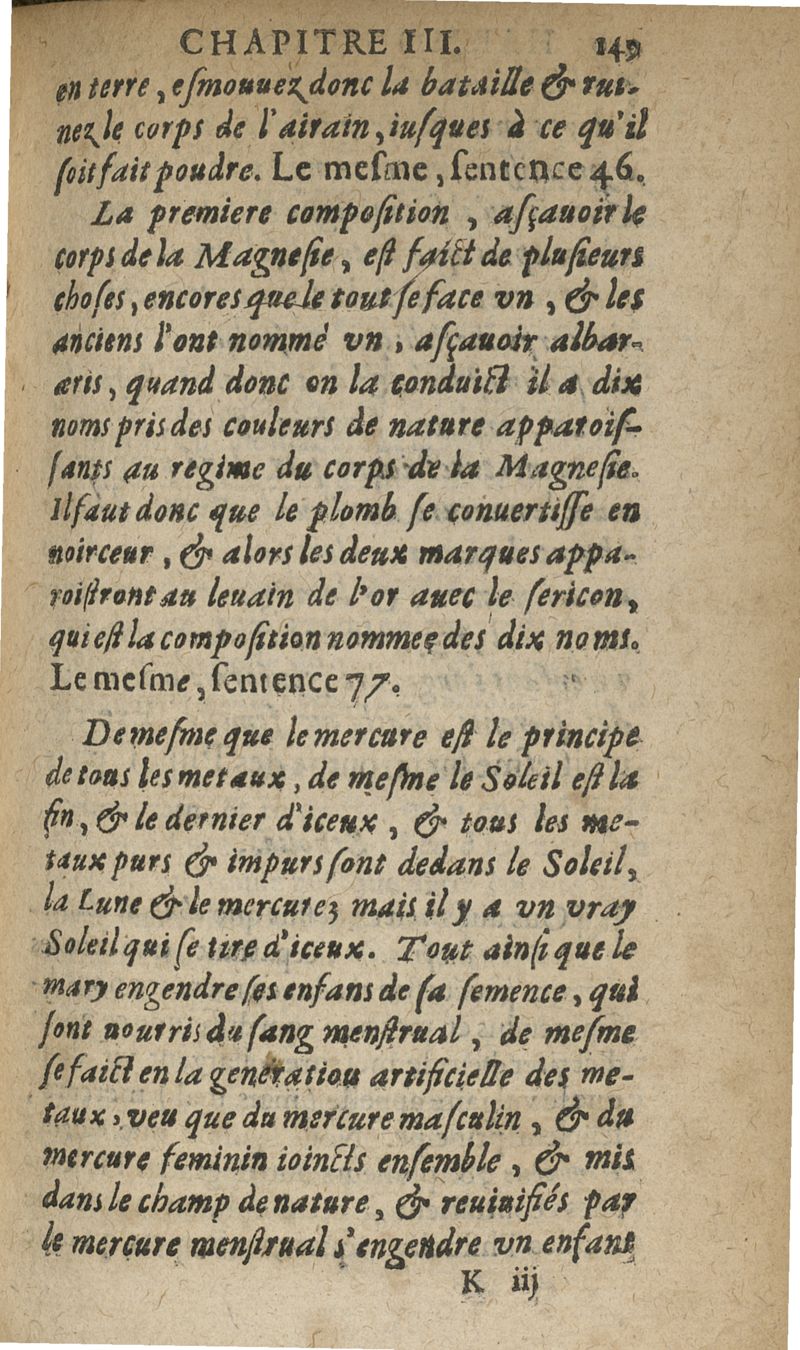 CHAPITRE III. 149
en terre, eſmouuez donc la bataille & rui-
nez le corps de l'airain, iuſques à ce qu'il
ſoit fait poudre. Le meſme, ſentence 46.
La premiere compoſition, aſçauoir le
corps de la Magneſie, eſt faict de pluſieurs
choſes, encores que le tout ſe face vn, & les
anciens l'ont nommé vn, aſçauoir albar-
æris, quand donc on la conduict il a dix
noms pris des couleurs de nature apparoiſ-
ſants au regime du corps de la Magneſie.
Il faut donc que le plomb ſe conuertiſſe en
noirceur, & alors les deux marques appa-
roiſtront au leuain de l'or auec le ſericon,
qui eſt la compoſition nommee des dix noms.
Le meſme, ſentence 77.
De meſme que le mercure eſt le principe
de tous les metaux, de meſme le Soleil eſt la
fin, & le dernier d'iceux, & tous les me-
taux purs & impurs ſont dedans le Soleil,
la Lune & le mercure; mais il y a vn vray
Soleil qui ſe tire d'iceux. Tout ainſi que le
mary engendre ſes enfans de ſa ſemence, qui
ſont nourris du ſang menſtrual, de meſme
ſe faict en la generation artificielle des me-
taux, veu que du mercure maſculin, & du
mercure feminin ioincts enſemble, & mis
dans le champ de nature, & reuiuifiés par
le mercure menſtrual s'engendre vn enfant
K iij